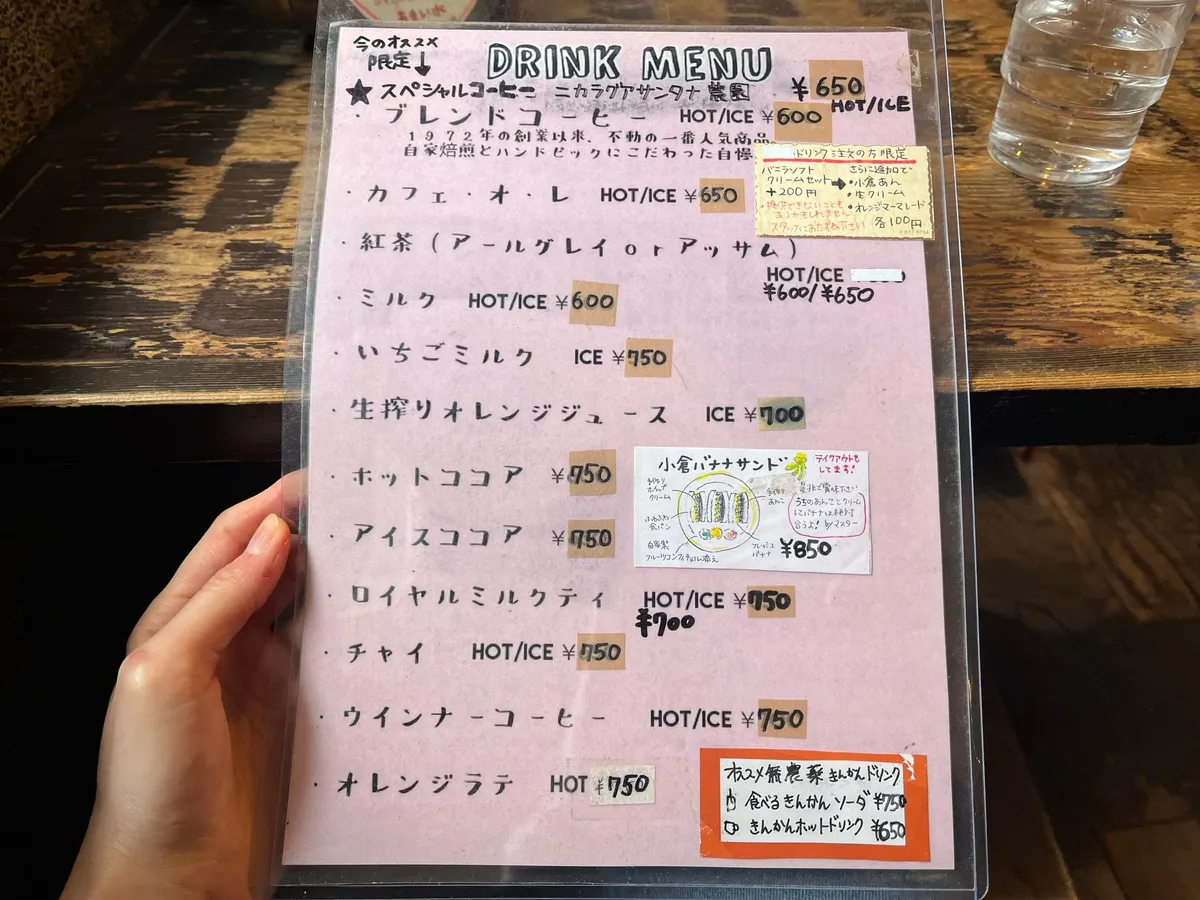 あまい水
今のオススメ
限定↓
DRINK MENU
★スペシャルコーヒー ニカラグアサンタナ農園 ¥650
HOT/ICE
・ブレンドコーヒー HOT/ICE ¥600
1972年の創業以来、不動の一番人気商品。
自家焙煎とハンドピックにこだわった自慢
ドリンク注文の方限定
バニラソフト
クリームセット
+200円
さらに追加で
→・小倉あん
・生クリーム
・オレンジマーマレード
各100円
提供できないことも
あるかもしれません
スタッフにおたずね下さい
・カフェ・オ・レ HOT/ICE ¥650
・紅茶(アールグレイorアッサム)
HOT/ICE
¥600/¥650
・ミルク HOT/ICE ¥600
・いちごミルク ICE ¥750
・生搾りオレンジジュース ICE ¥700
・ホットココア ¥750
小倉バナナサンド
テイクアウトも
してます!
手作り
ホイップ
クリーム
ふわふわ
食パン
自家製
フルーツコンフィチュール添え
手作り
あんこ
フレッシュ
バナナ
是非ご賞味下さい
うちのあんことクリーム
にバナナは
合うよ! by マスター
¥850
・アイスココア ¥750
・ロイヤルミルクティ HOT/ICE ¥750
¥700
・チャイ HOT/ICE ¥750
・ウインナーコーヒー HOT/ICE ¥750
・オレンジラテ HOT ¥750
オススメ無農薬きんかんドリンク
食べるきんかんソーダ ¥750
きんかんホットドリンク ¥650